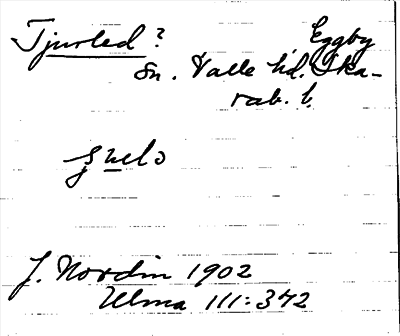 Tjurled? Eggby
Sn. Valle hd. Ska-
rab. l.
J. Nordin 1902
Ulma 111:342